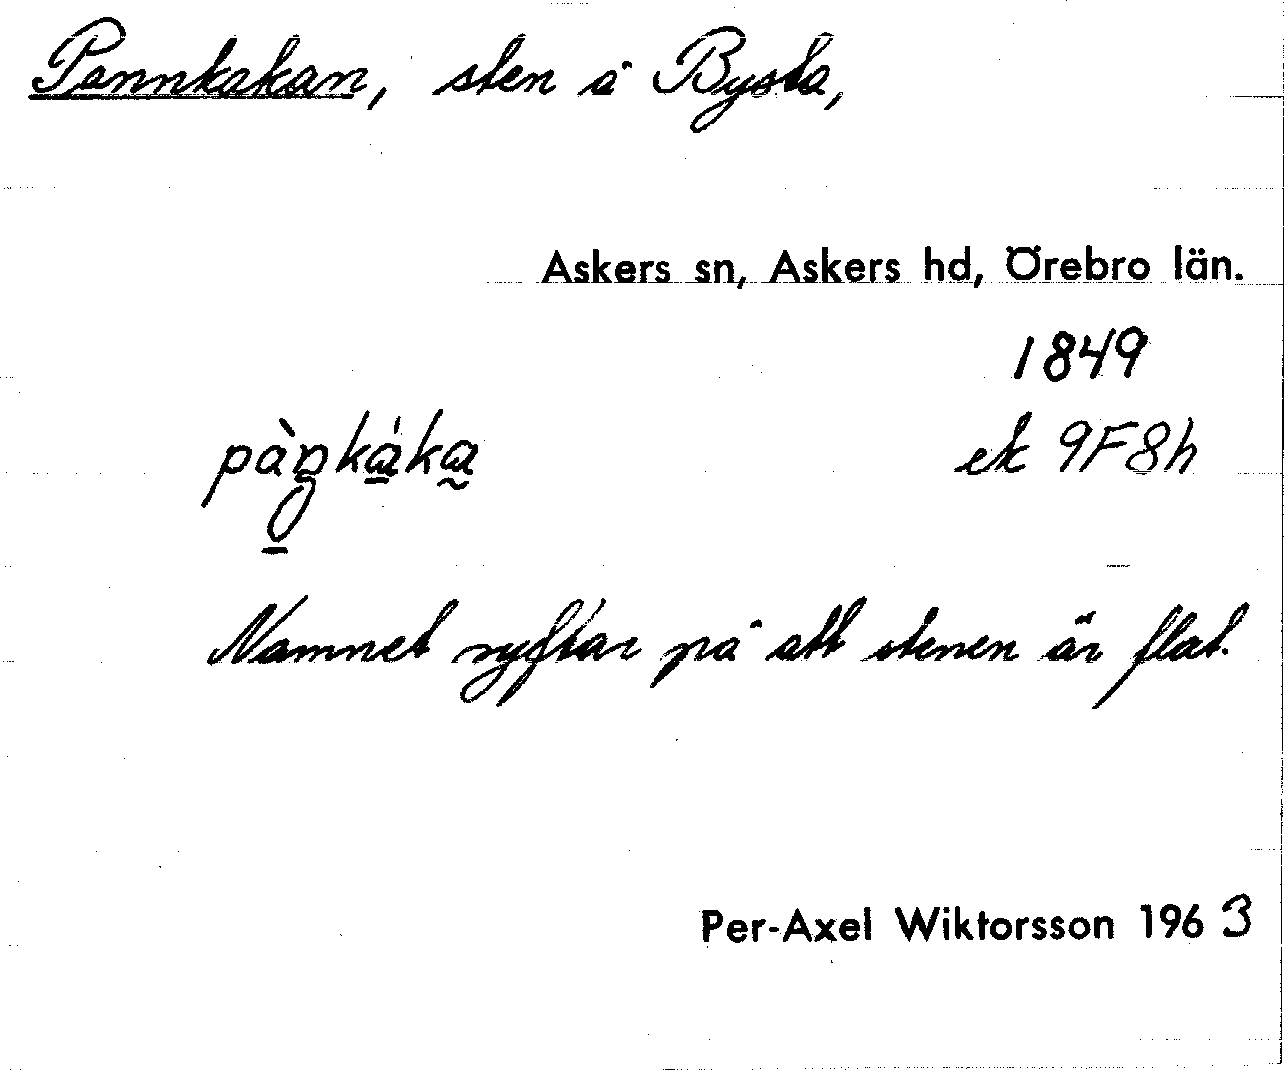 Pannkakan, sten å Bysta,
Askers sn, Askers hd, Örebro län.
1849
pàŋkáka
ek 9F8h
Namnet syftar på att stenen är flat.
Per-Axel Wiktorsson 1963